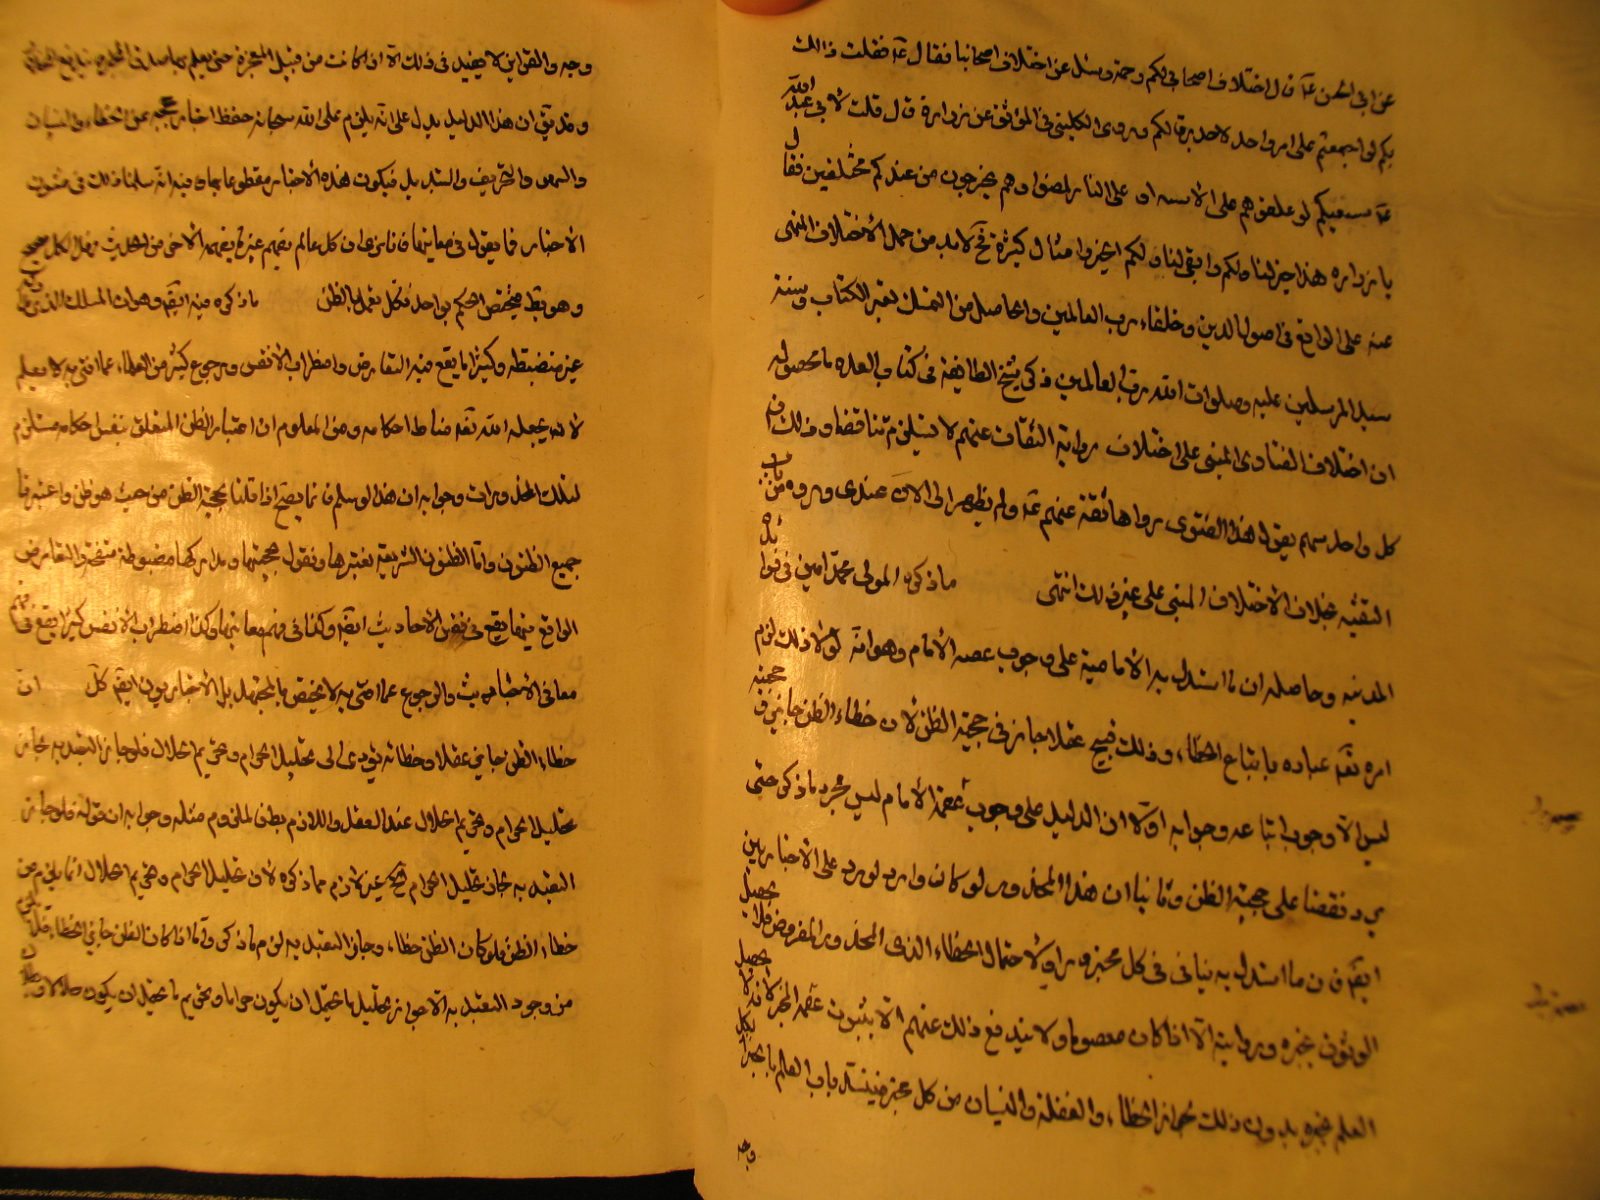 عن ابى الحسن عۤ قال اختلاف اصحابى لكم رحمة وسئل عن اختلاف اصحابنا فقال عۤ فعلت ذالك
بكم لو اجتمعتم على امر واحد لاخذ برقابكم وروى الكلينى فى الموثق عن زرارة قال قلت لابى عبد الله
عۤ شيعتكم لو حملتموهم على الاسنة او على النار لمضوا وهم يخرجون من عندكم مختلفين فقال
يا زرارة هذا خير لنا ولكم وابقى لنا ولكم الى غير ذا مثال كثيرة فح لا بد من حمل الاختلاف المنهى
عنه على الواقع فى اصول الدين وخلفاء رب العالمين والحاصل من التمسك لغير الكتاب وسنة
سيد المرسلين عليه وصلوات الله رب العالمين ذكر شيخ الطايفة فى كتاب العدة ما محصوله
ان اختلاف الفتاوى المبنى على اختلاف رواية الثقات عنهم لا يستلزم تناقضا وذلك لان
كل واحد منهم يقول هذا الفتوى رواها ثقة عنهم عۤ ولم يظهر الى الان عندى وروده من باب
التقية بخلاف الاختلاف المبنى على غير ذلك انتهى ما ذكره المولى محمد امين فى فوائد
المدنية وحاصله ان ما استدل به الامامية على وجوب عصمة الامام وهو انه لولا ذلك لزم
امره تعۤ عباده باتباع الخطاء وذلك قبيح عقلا جار فى حجية الظن لان خطاء الظن جايز و حجيته
ليس الا وجوب اتباعه وجوابه اولا ان الدليل على وجوب عصمة الامام ليس مجرد ما ذكر حتى
يرد نقضنا على حجية الظن وثانيا ان هذا المحذور لو كان واردا لورد على الاخباريين
ايضۤ فان ما استدل به ياتى فى كل مخبر وراو لاحتمال الخطاء الذى المحذور المفروض فلا يحصل
الوثوق بخبره وروايته الا اذا كان معصوما ولا يندفع ذلك عنهم الا بثبوت عصمة المخبر لافادة
العلم بخبره بدون ذلك لجواز الخطاء والغفلة والنسيان من كل مخبر فينسد باب العلم
وجه
وجه والقراين لا تفيد فى ذلك الا اذا كانت من قبيل المعجزة حتى يعلم بها
وقد يقۤ ان هذا الدليل يدل على انه يلزم على الله سبحانه حفظ اخبار حججه عن الخطاء والنسيان
والسهو والتحريف والتبديل فيكون هذه الاخبار مقطوعا بها وفيه انه سلمنا ذلك فى متون
الاخبار فما يقول فى معانيها فانا نرى ان كل عالم يفهم غير ما يفهمه الاخر من الحديث فهل الكل صحيح
وهو بط فيختص الحكم بواحد فكل يعمل بالظن ما ذكره فيه ايضۤ وهو ان المسلك الذى
غير منضبطة وكثيرا ما يقع فيه التعارض واضطراب الانفس ورجوع كثير من العلماء عما افتى به لا يصلح
لان يجعله الله تعۤ مناط احكامه ومن المعلوم ان اعتبار الظن المتعلق بنفس احكامه مستلزم
لتلك المحذورات وجوابه ان هذا لو سلم فانما يصح اذا قلنا بحجية الظن من حيث هو ظن واعتبرنا
جميع الظنون واما الظنون الشرعية نعتبرها ونقول بحجيتها ومداركها مضبوطة متضحة والتعارض
الواقع بينهما يقع فى نفس الاحاديث ايضۤ وكذا فى فهم معانيها وكذا اضطراب الانفس كثيرا يقع فى فهم
معانى الاحاديث والرجوع عما افتى به لا يختص بالمجتهد بل الاخباريون ايضۤ كل ان
خطاء الظن جايز عقلا وخطائه يؤدى الى تحليل الحرام وتحريم الحلال فلو جاز التعبد به لجاز
تحليل الحرام وتحريم الحلال عند العقل واللازم بط فالملزوم مثله وجوابه ان قوله فلو جاز
التعبد به لجاز تحليل الحرام الخ غير لازم مما ذكره لان تحليل الحرام وتحريم الحلال انما يلزم من
خطاء الظن فلو كان الظن خطاء وجاز التعبد به لزم ما ذكر واما اذا كان الظن جايز الخطاء فلا يلزم
من وجود التعبد به الا جواز تحليل ما يحتمل ان يكون حراما وتحريم ما يحتمل ان يكون حلالا